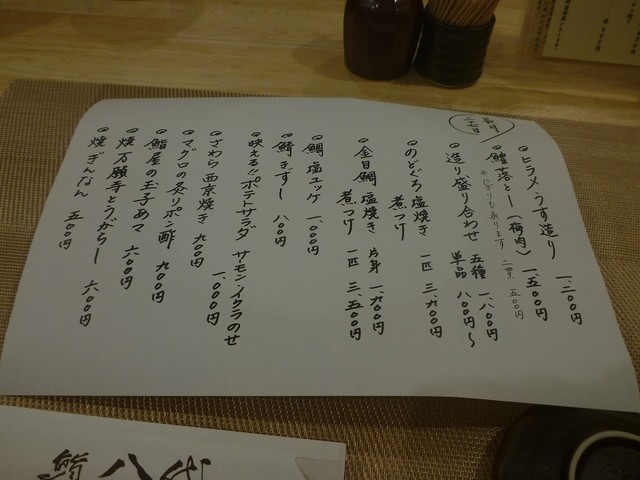 ヒラメうす造り 一、二〇〇円
鱧落とし(梅肉) 一、五〇〇円
*にぎりも承ります 二貫 五〇〇円
造り盛り合わせ 五種 一、八〇〇円
単品 八〇〇円〜
のどぐろ塩焼き 一匹 三、九〇〇円
煮つけ
金目鯛塩焼き 片身 一、九〇〇円
煮つけ 一匹 三、五〇〇円
鯛塩ユッケ 一、〇〇〇円
鯖きずし 八〇〇円
映える!!ポテトサラダ サーモン・イクラのせ
一、〇〇〇円
さわら西京焼き 九〇〇円
マグロの炙りポン酢 九〇〇円
鮨屋の玉子あて 六〇〇円
焼万願寺とうがらし 六〇〇円
焼ぎんなん 五〇〇円
鮨
八